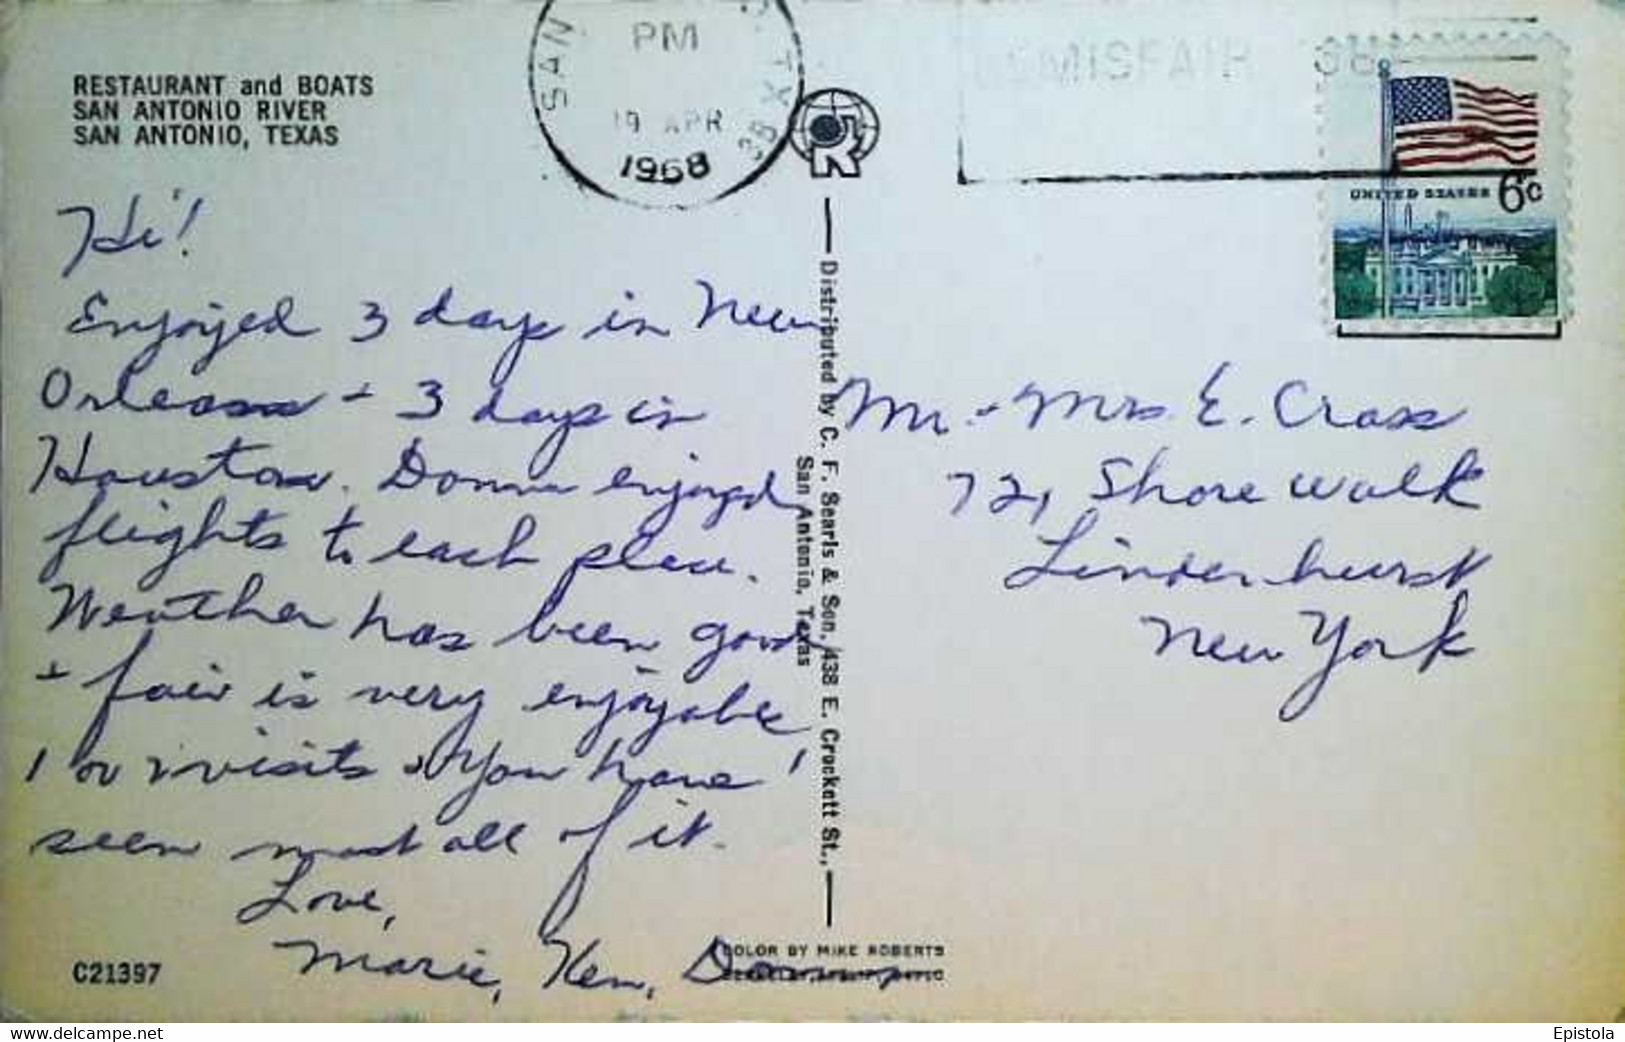 RESTAURANT and BOATS
SAN ANTONIO RIVER
SAN ANTONIO, TEXAS
SAN
PM
19 APR
1968
TX
HEMISFAIR 68
UNITED STATES 6c
Hi!
Enjoyed 3 days in New
Orleans + 3 days in
Houston. Donna enjoyed
flights to each place.
Weather has been good
+ fair is very enjoyable
1 or 2 visits & you have
seen most all of it.
Love,
Marie, Ken, Donna
Mr. + Mrs E. Cross
721 Shore Walk
Lindenhurst
New York
Distributed by C. F. Searls & Son, 438 E. Crockett St.,
San Antonio, Texas
COLOR BY MIKE ROBERTS
C21397
https://www.delcampe.net
Epistola